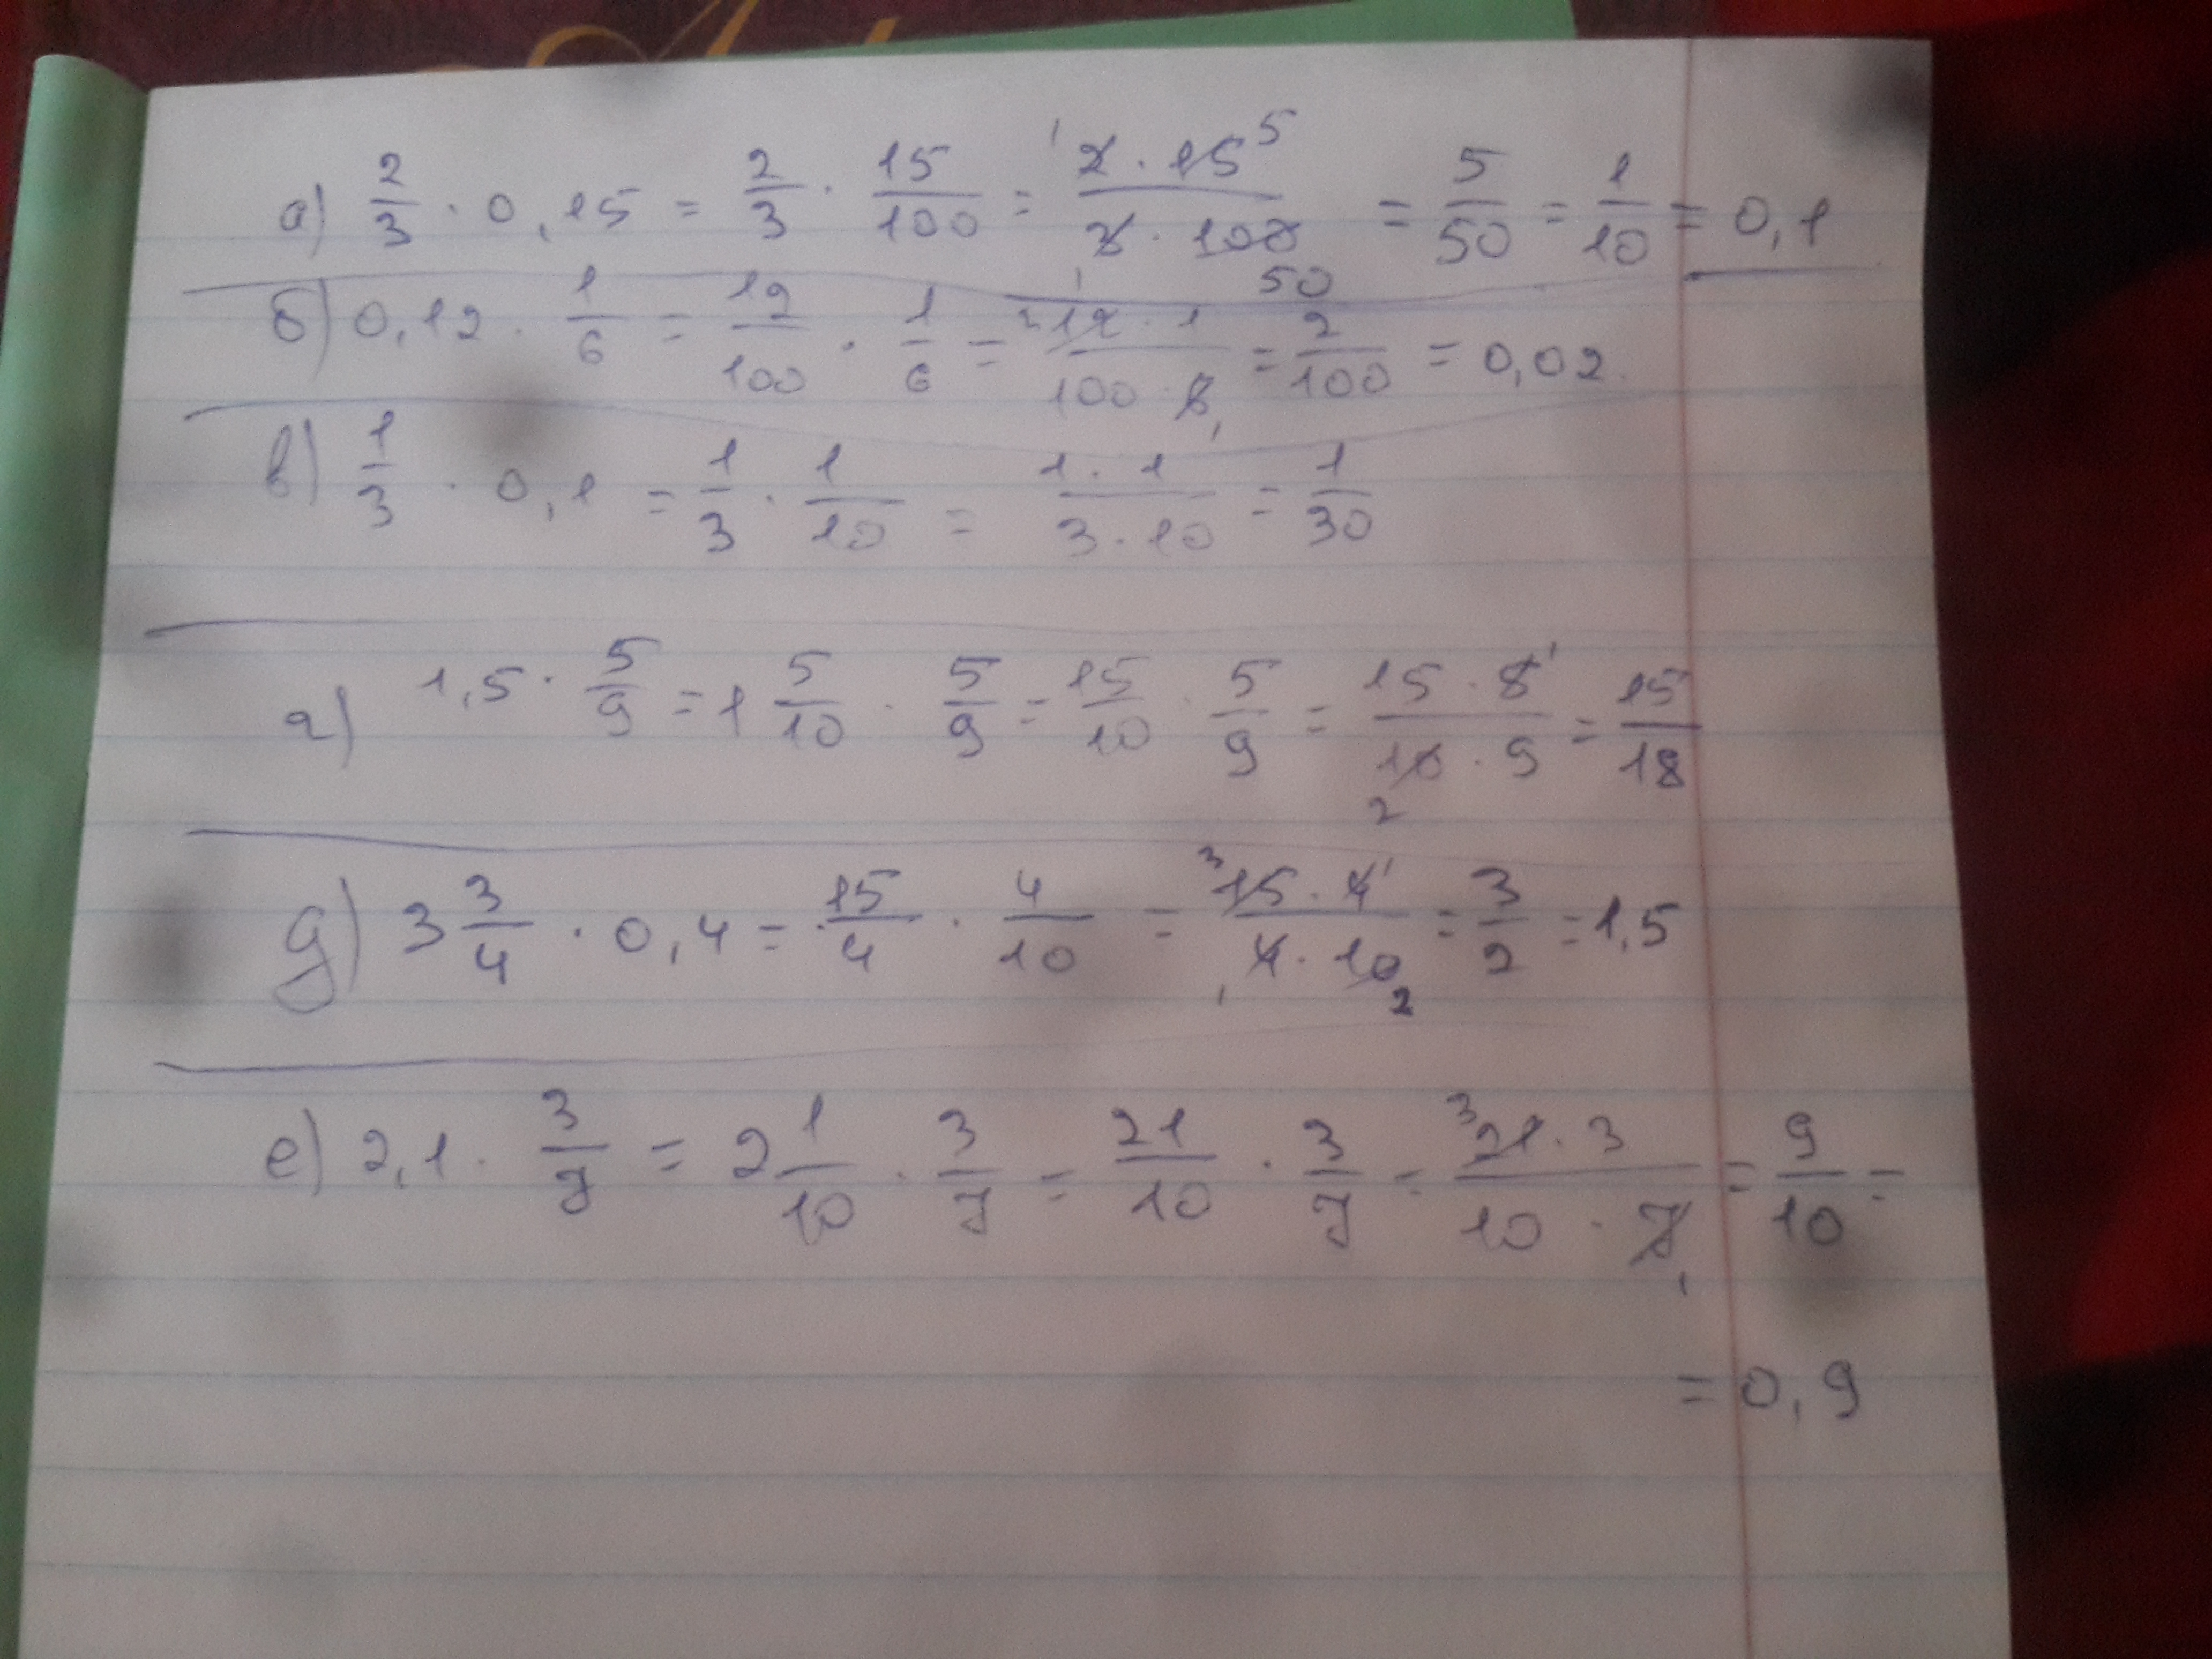 а) 2/3 · 0,15 = 2/3 · 15/100 = (2 · 15)/(3 · 100) 1 5 1 50 = 5/50 = 1/10 = 0,1
б) 0,12 · 1/6 = 12/100 · 1/6 = 2 (12 · 1)/(100 · 6) 1 = 2/100 = 0,02
в) 1/3 · 0,1 = 1/3 · 1/10 = (1 · 1)/(3 · 10) = 1/30
г) 1,5 · 5/9 = 1 5/10 · 5/9 = 15/10 · 5/9 = (15 · 5)/(10 · 9) 1 2 = 15/18
д) 3 3/4 · 0,4 = 15/4 · 4/10 = 3 (15 · 4)/(4 · 10) 1 1 2 = 3/2 = 1,5
е) 2,1 · 3/7 = 2 1/10 · 3/7 = 21/10 · 3/7 = 3 (21 · 3)/(10 · 7) 1 = 9/10 =
= 0,9